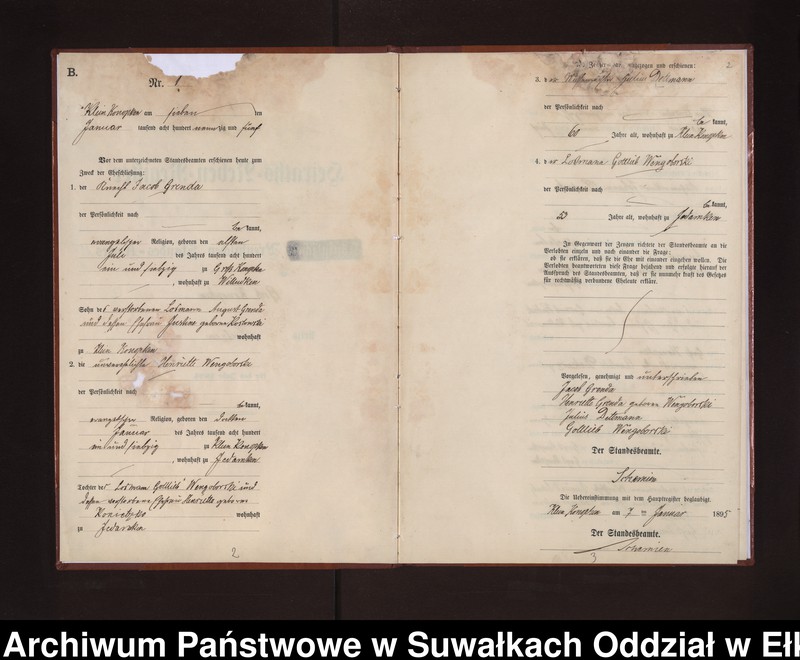 B.
Nr. 1
Klein Konopken am sieben ten
Januar tausend acht hundert neunzig und fünf
Vor dem unterzeichneten Standesbeamten erschienen heute zum
Zweck der Eheschließung:
1. der Knecht Jacob Grenda
der Persönlichkeit nach
be kannt,
evangelischer Religion, geboren den elften
Juli des Jahres tausend acht hundert
ein und siebzig zu Groß Konopken
, wohnhaft zu
Sohn des verstorbenen Losmann August Grenda
und dessen Ehefrau Justine geborene
wohnhaft
zu Klein Konopken
2. die unverehelichte Henriette Wengoborska
der Persönlichkeit nach
be kannt,
evangelischer Religion, geboren den dritten
Januar des Jahres tausend acht hundert
und siebzig zu Klein Konopken
, wohnhaft zu Jedamken
Tochter des Losmann Gottlieb Wengoborski und
dessen verstorbene Ehefrau Henriette geborene
wohnhaft
zu Jedamken
2
2
Als Zeugen waren zugezogen und erschienen:
3. der Julius Dettmann
der Persönlichkeit nach
be kannt,
60 Jahre alt, wohnhaft zu Klein Konopken
4. der Losmann Gottlieb Wengoborski
der Persönlichkeit nach
be kannt,
53 Jahre alt, wohnhaft zu Jedamken
In Gegenwart der Zeugen richtete der Standesbeamte an die
Verlobten einzeln und nach einander die Frage:
ob sie erklären, daß sie die Ehe mit einander eingehen wollen. Die
Verlobten beantworteten diese Frage bejahend und erfolgte hierauf der
Ausspruch des Standesbeamten, daß er sie nunmehr kraft des Gesetzes
für rechtmäßig verbundene Eheleute erkläre.
Vorgelesen, genehmigt und unterschrieben
Jacob Grenda
Henriette Grenda geboren Wengoborski
Julius Dettmann
Gottlieb Wengoborski
Der Standesbeamte.
Die Uebereinstimmung mit dem Hauptregister beglaubigt.
Klein Konopken am 7 ten Januar 1895
Der Standesbeamte.
3
Archiwum Państwowe w Suwałkach Oddział w Ełk